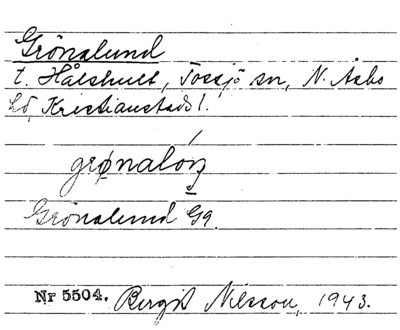 Grönalund
t. Hålshult, Tossjö sn, N. Åsbo
hd, Kristianstads l.
grønalónḍ
Grönalund Gg.
Nr 5504. Birgit Nilsson, 1943.